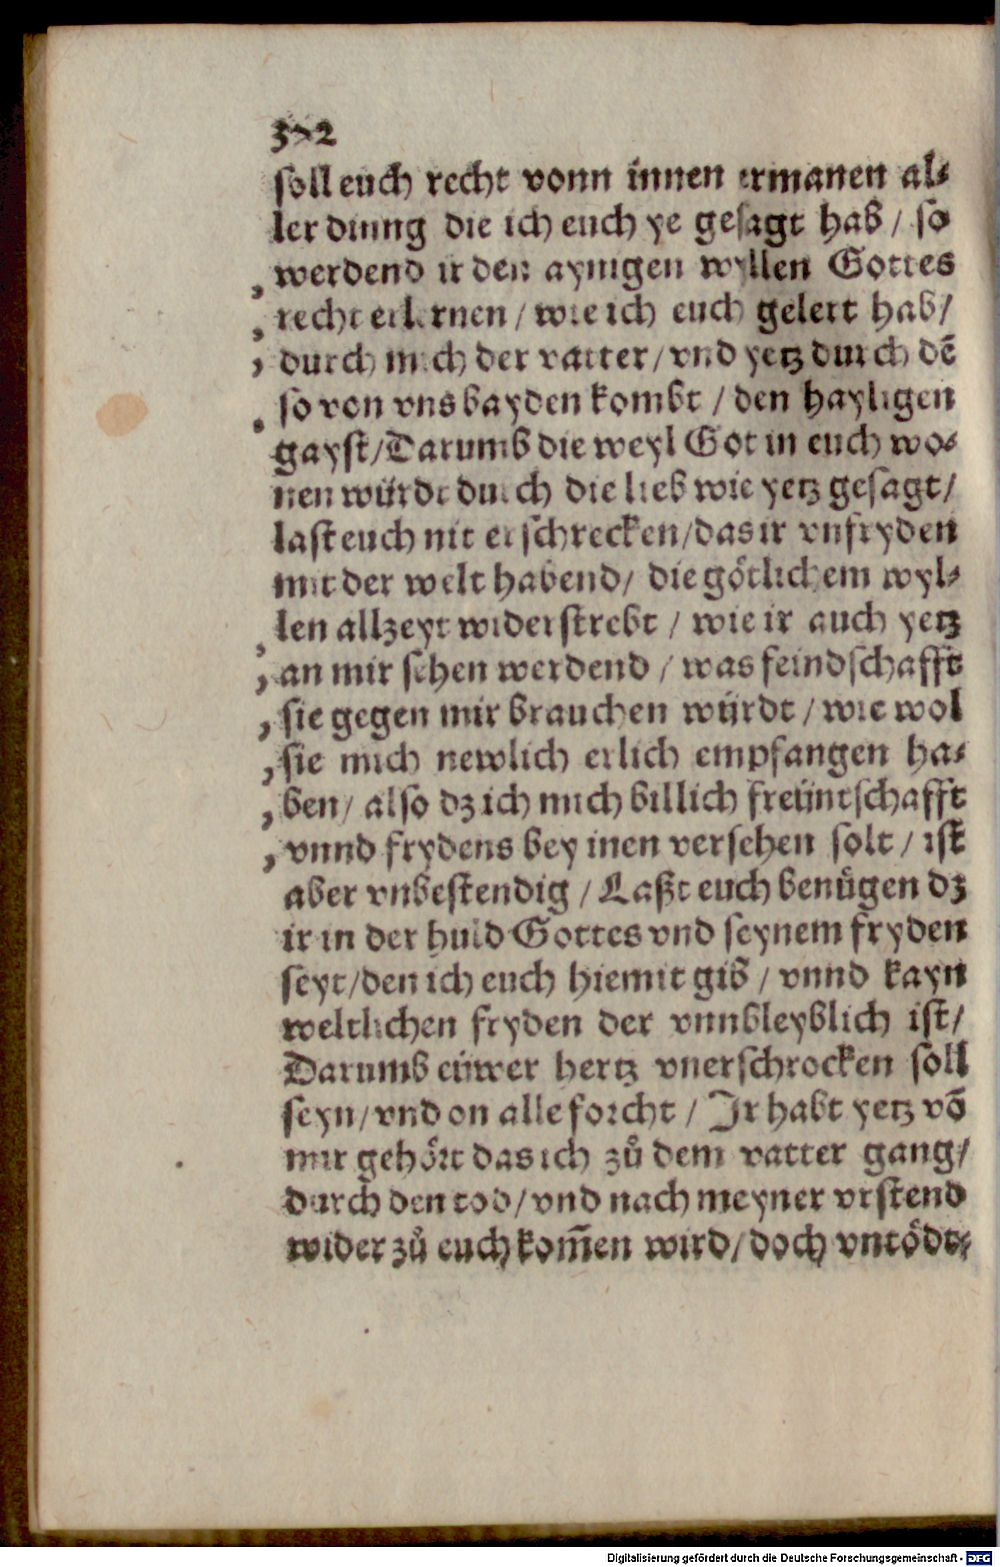 soll euch recht vonn innen ermanen al⸗
ler dinng die ich euch ye gesagt hab / so
, werdend ir den aynigen wyllen Gottes
, recht erlernen / wie ich euch gelert hab /
, durch mich der vatter / vnd yetz durch dē
, so von vns bayden kombt / den hayligen
gayst / Darumb die weyl Got in euch wo⸗
nen würdt durch die lieb wie yetz gesagt /
last euch nit erschrecken / das ir vnfryden
mit der welt habend / die götlichem wyl⸗
, len allzeyt widerstrebt / wie ir auch yetz
, an mir sehen werdend / was feindschafft
, sie gegen mir brauchen würdt / wie wol
, sie mich newlich erlich empfangen ha⸗
, ben / also dz ich mich billich freüntschafft
, vnnd frydens bey inen versehen solt / ist
aber vnbestendig / Laßt euch benügen dz
ir in der huld Gottes vnd seynem fryden
seyt / den ich euch hiemit gib / vnnd kayn
weltlichen fryden der vnnbleyblich ist /
Darumb eüwer hertz vnerschrocken soll
seyn / vnd on alle forcht / Ir habt yetz vō
mir gehört das ich zů dem vatter gang /
durch den tod / vnd nach meyner vrstend
wider zů euch kom̄en wird / doch vntödt⸗
Digitalisierung gefördert durch die Deutsche Forschungsgemeinschaft - DFG